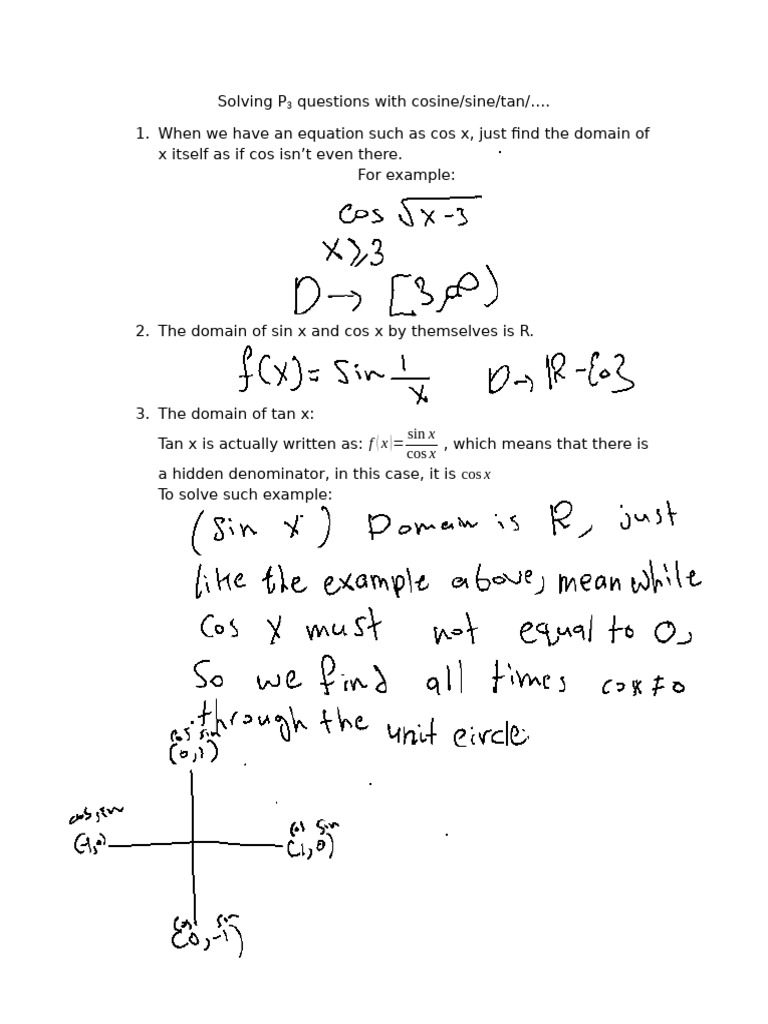 Solving P₃ questions with cosine/sine/tan/....
1. When we have an equation such as cos x, just find the domain of
x itself as if cos isn't even there.
For example:
cos √x-3
x⩾3
D → [3,∞)
2. The domain of sin x and cos x by themselves is R.
f(x)= sin 1/x D → R -{0}
3. The domain of tan x:
Tan x is actually written as: f(x)= sin x/cos x , which means that there is
a hidden denominator, in this case, it is cos x
To solve such example:
(sin x) Domain is R, just
like the example above, meanwhile
cos x must not equal to 0,
So we find all times cos x ≠ 0
through the unit circle.
cos sin
(0,1)
cos,sin
(-1,0)
cos sin
(1,0)
cos sin
(0,-1)